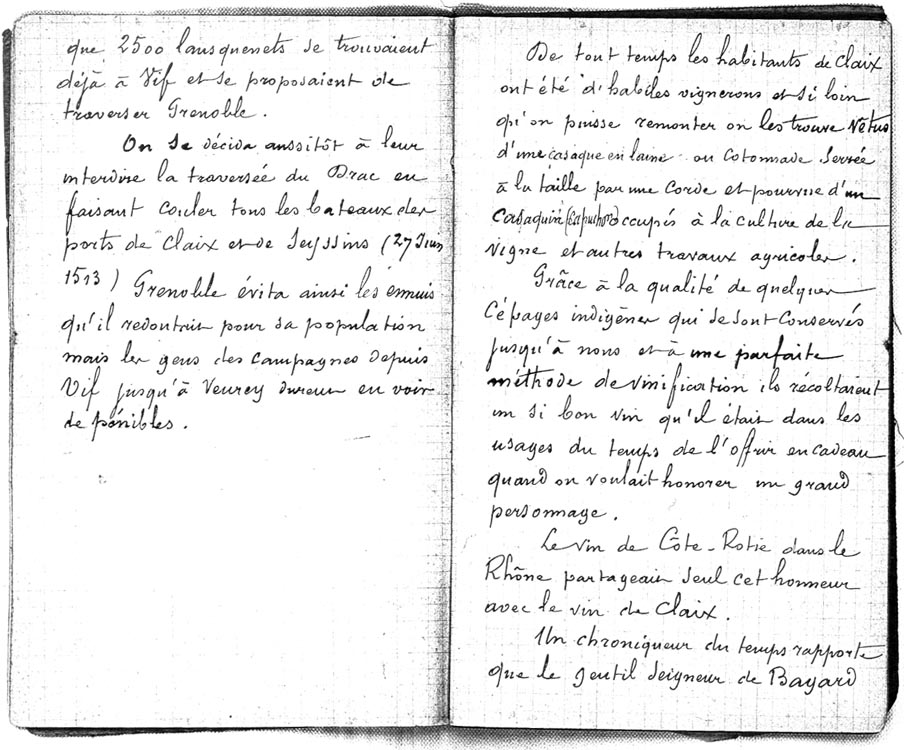 que 2500 lansquenets se trouvaient
déjà à Vif et se proposaient de
traverser Grenoble.
On se décida aussitôt à leur
interdire la traversée du Drac en
faisant couler tous les bateaux des
ports de Claix et de Seyssins (27 Juin
1513) Grenoble évita ainsi les ennuis
qu'il redoutait pour sa population
mais les gens des campagnes depuis
Vif jusqu'à Veurey durent en voir
de pénibles.
De tout temps les habitants de Claix
ont été d'habiles vignerons et si loin
qu'on puisse remonter on les trouve vêtus
d'une casaque en laine ou cotonnade serrée
à la taille par une corde et pourvue d'un
casaquin (capuchon) occupés à la culture de la
vigne et autres travaux agricoles.
Grâce à la qualité de quelques
cépages indigènes qui se sont conservés
jusqu'à nous et à une parfaite
méthode de vinification ils récoltaient
un si bon vin qu'il était dans les
usages du temps de l'offrir en cadeau
quand on voulait honorer un grand
personnage.
Le vin de Côte-Rotie dans le
Rhône partageait seul cet honneur
avec le vin de Claix.
Un chroniqueur du temps rapporte
que le gentil seigneur de Bayard